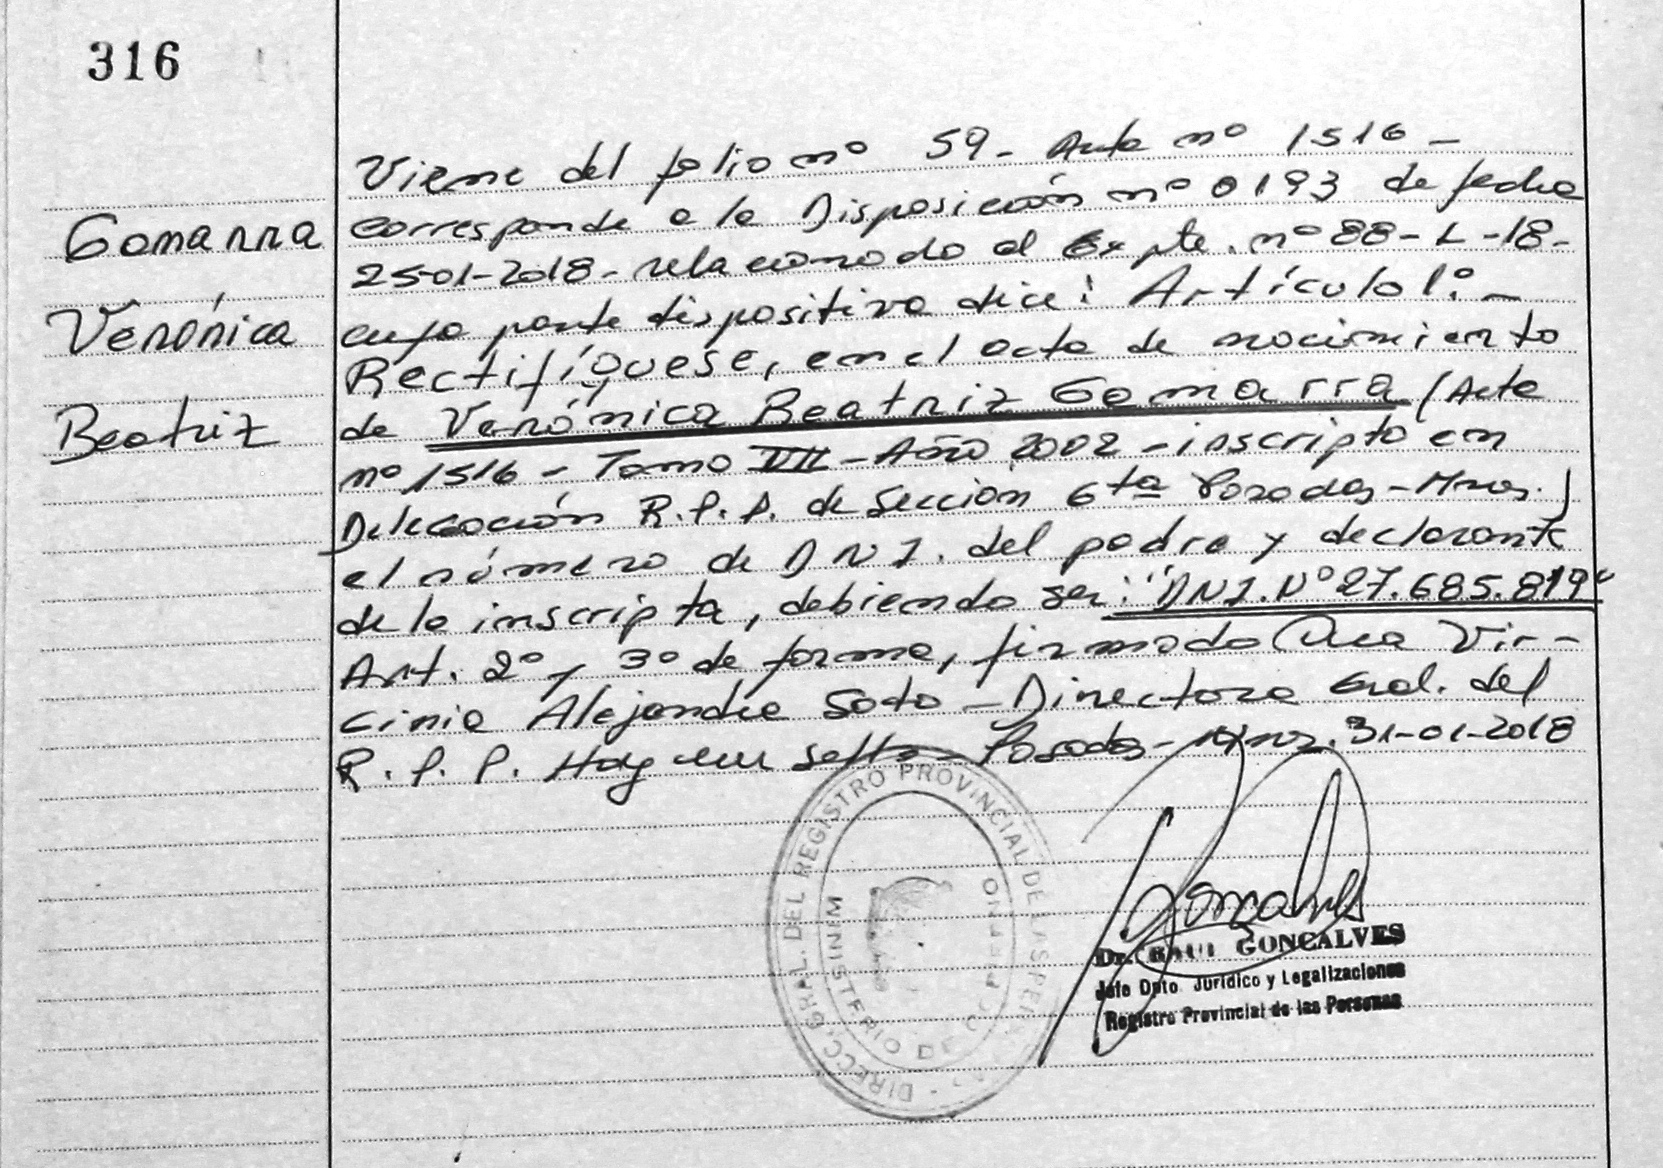 316
Gomarra
Verónica
Beatriz
Viene del folio nº 59 - Acta nº 1516 -
corresponde a la Disposición nº 0193 de fecha
25-01-2018 - relacionado al Expte. nº 88-L-18-
cuya parte dispositiva dice: Artículo 1º -
Rectifíquese, en el acta de nacimiento
de Verónica Beatriz Gomarra (Acta
nº 1516 - Tomo VII - Año 2002 - inscripto en
Delegación R.P.P. de Sección 6ta Posadas - Mnes.)
el número de DNI. del padre y declarante
de la inscripta, debiendo ser: "DNI. Nº 27.685.819"
Art. 2º y 3º de forma, firmado Ana Vir-
ginia Alejandra Soto - Directora Gral. del
R.P.P. Hay un sello - Posadas - Mnes. 31-01-2018
DIRECC. GRAL. DEL REGISTRO PROVINCIAL DE LAS PERSONAS
MINISTERIO DE GOBIERNO
Goncalves
Dr. RAUL GONCALVES
Jefe Dpto. Jurídico y Legalizaciones
Registro Provincial de las Personas